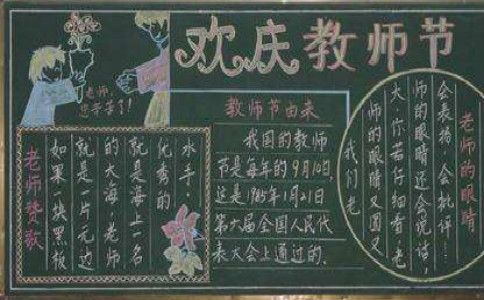 欢庆教师节
老师
您辛苦了!
老师赞歌
如果一块黑板
就是一片无边
的大海,老师
就是海上一名
优秀的
水手。
教师节由来
我国的教师
节是每年的9月10日,
这是1985年1月21日
第六届全国人民代
表大会上通过的。
老师的眼睛
我们老
师的眼睛又圆又
大,你若仔细看,老
师的眼睛还会说话,
会表扬,会批评!